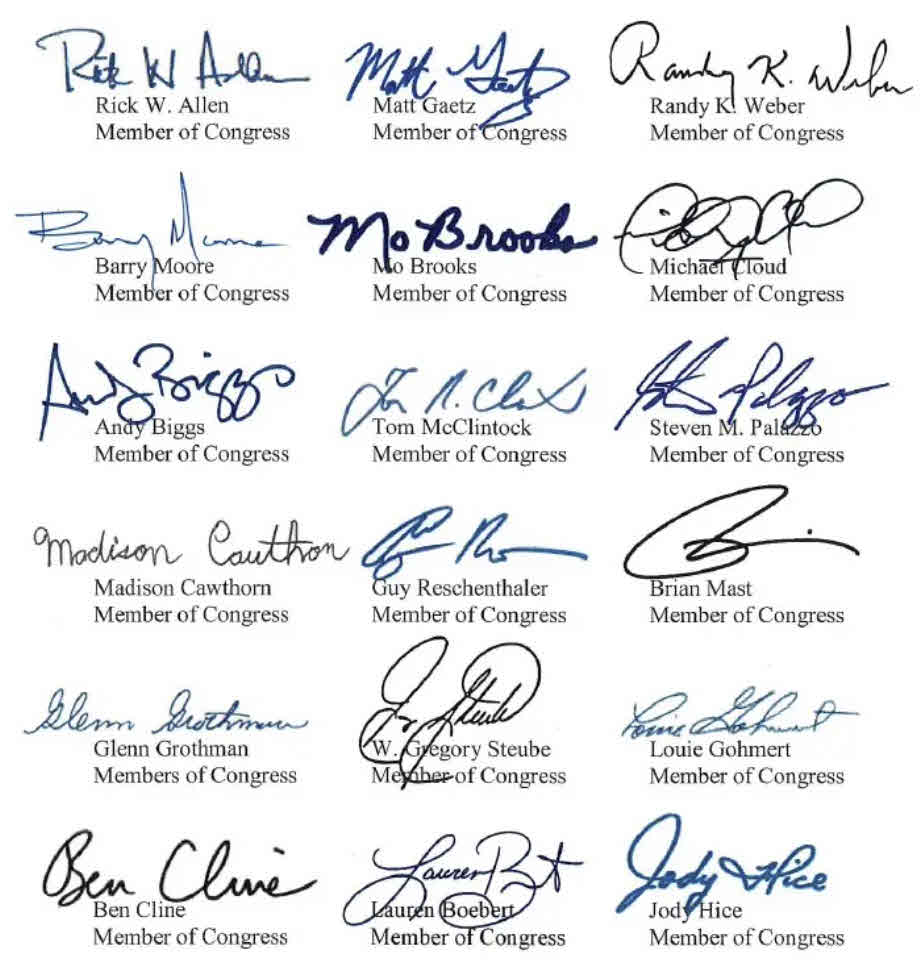 Rick W Allen Matt Gaetz Randy K. Weber
Rick W. Allen Matt Gaetz Randy K. Weber
Member of Congress Member of Congress Member of Congress
Barry Moore Mo Brooks Michael Cloud
Barry Moore Mo Brooks Michael Cloud
Member of Congress Member of Congress Member of Congress
Andy Biggs
Andy Biggs Tom McClintock Steven M. Palazzo
Member of Congress Member of Congress Member of Congress
Madison Cawthorn
Madison Cawthorn Guy Reschenthaler Brian Mast
Member of Congress Member of Congress Member of Congress
Glenn Grothman Louie Gohmert
Glenn Grothman W. Gregory Steube Louie Gohmert
Members of Congress Member of Congress Member of Congress
Ben Cline Jody Hice
Ben Cline Lauren Boebert Jody Hice
Member of Congress Member of Congress Member of Congress